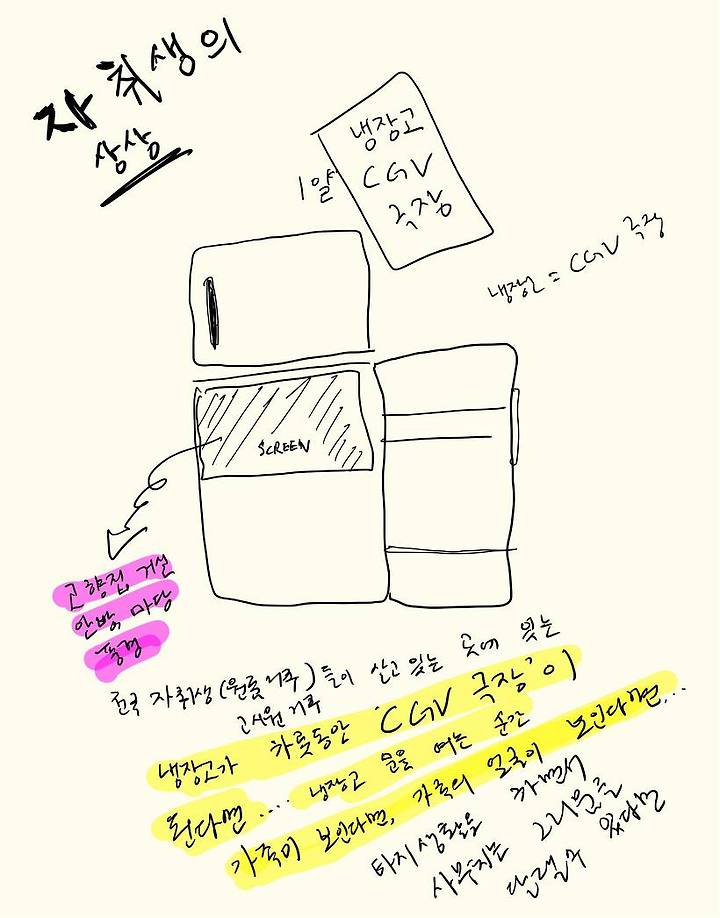 자취생의
상상
냉장고
CGV
극장
1일
냉장고 = CGV 극장
SCREEN
고향집 거실
안방 마당
풍경
전국 자취생(원룸거주)들이 살고 있는 곳에 있는
고시원거주
냉장고가 하룻동안 'CGV 극장'이
된다면.... 냉장고 문을 여는 순간
가족이 보인다면, 가족의 얼굴이 보인다면...
타지생활을 하면서
사무치는 그리움을
달랠 수 있다면